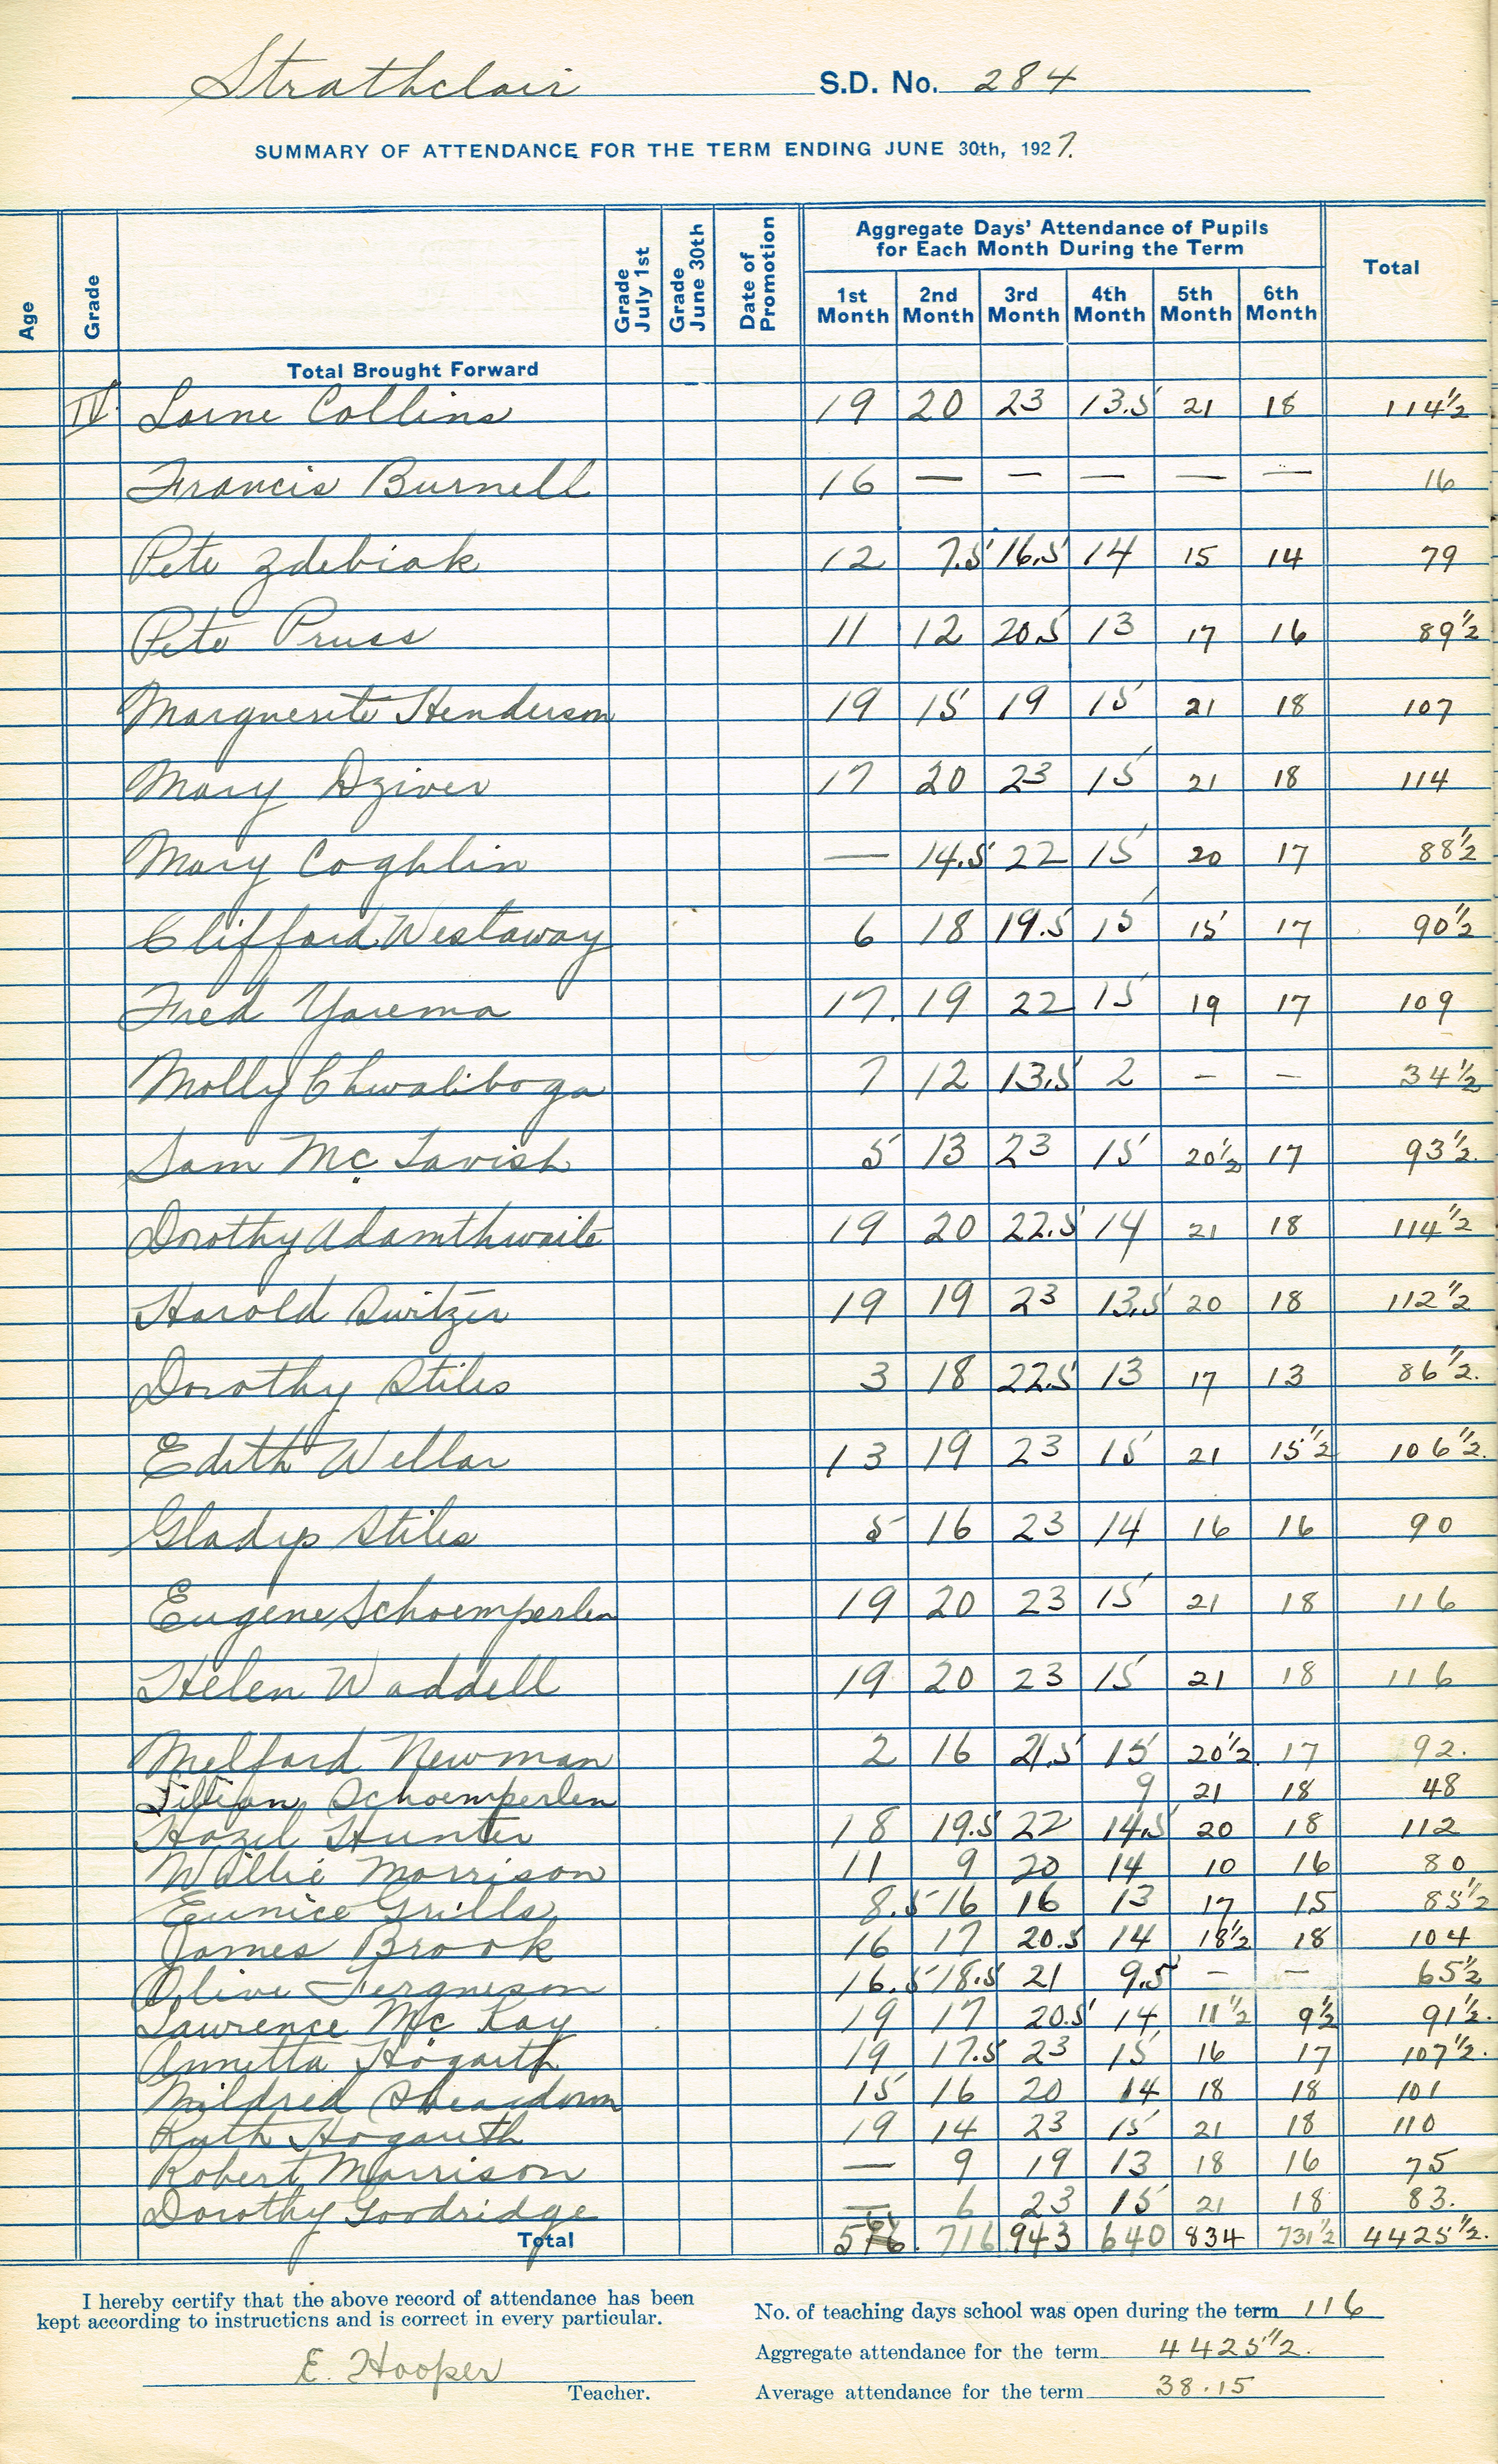 Strathclair S.D. No. 284
SUMMARY OF ATTENDANCE FOR THE TERM ENDING JUNE 30th, 1927.
Age Grade Grade July 1st Grade June 30th Date of Promotion Aggregate Days' Attendance of Pupils for Each Month During the Term Total
1st Month 2nd Month 3rd Month 4th Month 5th Month 6th Month
Total Brought Forward
IV. Lorne Collins 19 20 23 13.5 21 18 114 1/2
Francis Burnell 16 — — — — — 16
Pete Zdebiak 12 7.5 16.5 14 15 14 79
Pete Pruss 11 12 20.5 13 17 16 89 1/2
Marguerite Henderson 19 15 19 15 21 18 107
Mary Dziver 17 20 23 15 21 18 114
Mary Coghlin — 14.5 22 15 20 17 88 1/2
Clifford Westaway 6 18 19.5 15 15 17 90 1/2
Fred Yarema 17. 19 22 15 19 17 109
Molly Chwaliboga 7 12 13.5 2 – – 34 1/2
Sam McTavish 5 13 23 15 20 1/2 17 93 1/2.
Dorothy Adamthwaite 19 20 22.5 14 21 18 114 1/2
Harold Switzer 19 19 23 13.5 20 18 112 1/2
Dorothy Stiles 3 18 22.5 13 17 13 86 1/2.
Edith Wellar 13 19 23 15 21 15 1/2 106 1/2.
Gladys Stiles 5 16 23 14 16 16 90
Eugene Schoemperlen 19 20 23 15 21 18 116
Helen Waddell 19 20 23 15 21 18 116
Melford Newman 2 16 21.5 15 20 1/2 17 92.
Lillian Schoemperlen 9 21 18 48
Hazel Hunter 18 19.5 22 14.5 20 18 112
Willie Morrison 11 9 20 14 10 16 80
Eunice Grills 8.5 16 16 13 17 15 85 1/2
James Brook 16 17 20.5 14 18 1/2 18 104
Olive Ferguson 16.5 18.5 21 9.5 – – 65 1/2
Lawrence McKay 19 17 20.5 14 11 1/2 9 1/2 91 1/2.
Annetta Hogarth 19 17.5 23 15 16 17 107 1/2.
Mildred Sheardown 15 16 20 14 18 18 101
Ruth Hogarth 19 14 23 15 21 18 110
Robert Morrison — 9 19 13 18 16 75
Dorothy Goodridge — 6 23 15 21 18 83.
Total 716 943 640 834 731 1/2 4425 1/2.
I hereby certify that the above record of attendance has been
kept according to instructions and is correct in every particular.
E. Hooper
Teacher.
No. of teaching days school was open during the term 116
Aggregate attendance for the term 4425 1/2.
Average attendance for the term 38.15